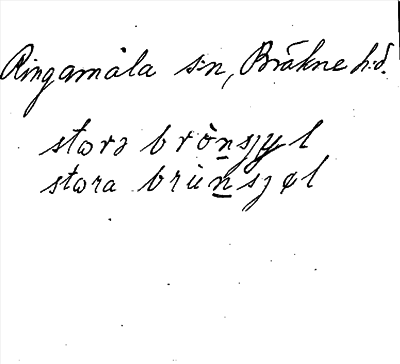 Ringamåla sn, Bräkne h.d.
storə brònsjyl
stora brùnsjøl